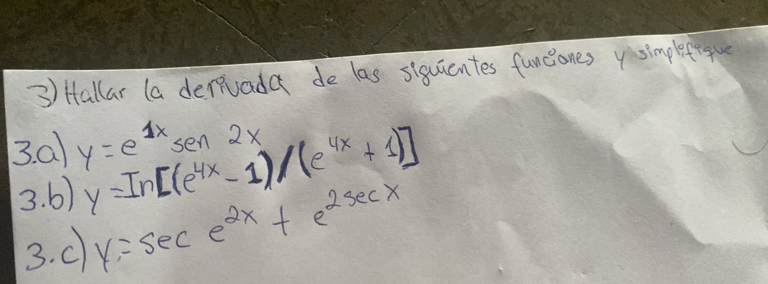 3) Hallar la derivada de las siguientes funciones y simplifique
3.a) y = e^1x sen 2x
3.b) y = In[(e^4x - 1)/(e^4x + 1)]
3.c) y = sec e^2x + e^2 sec x